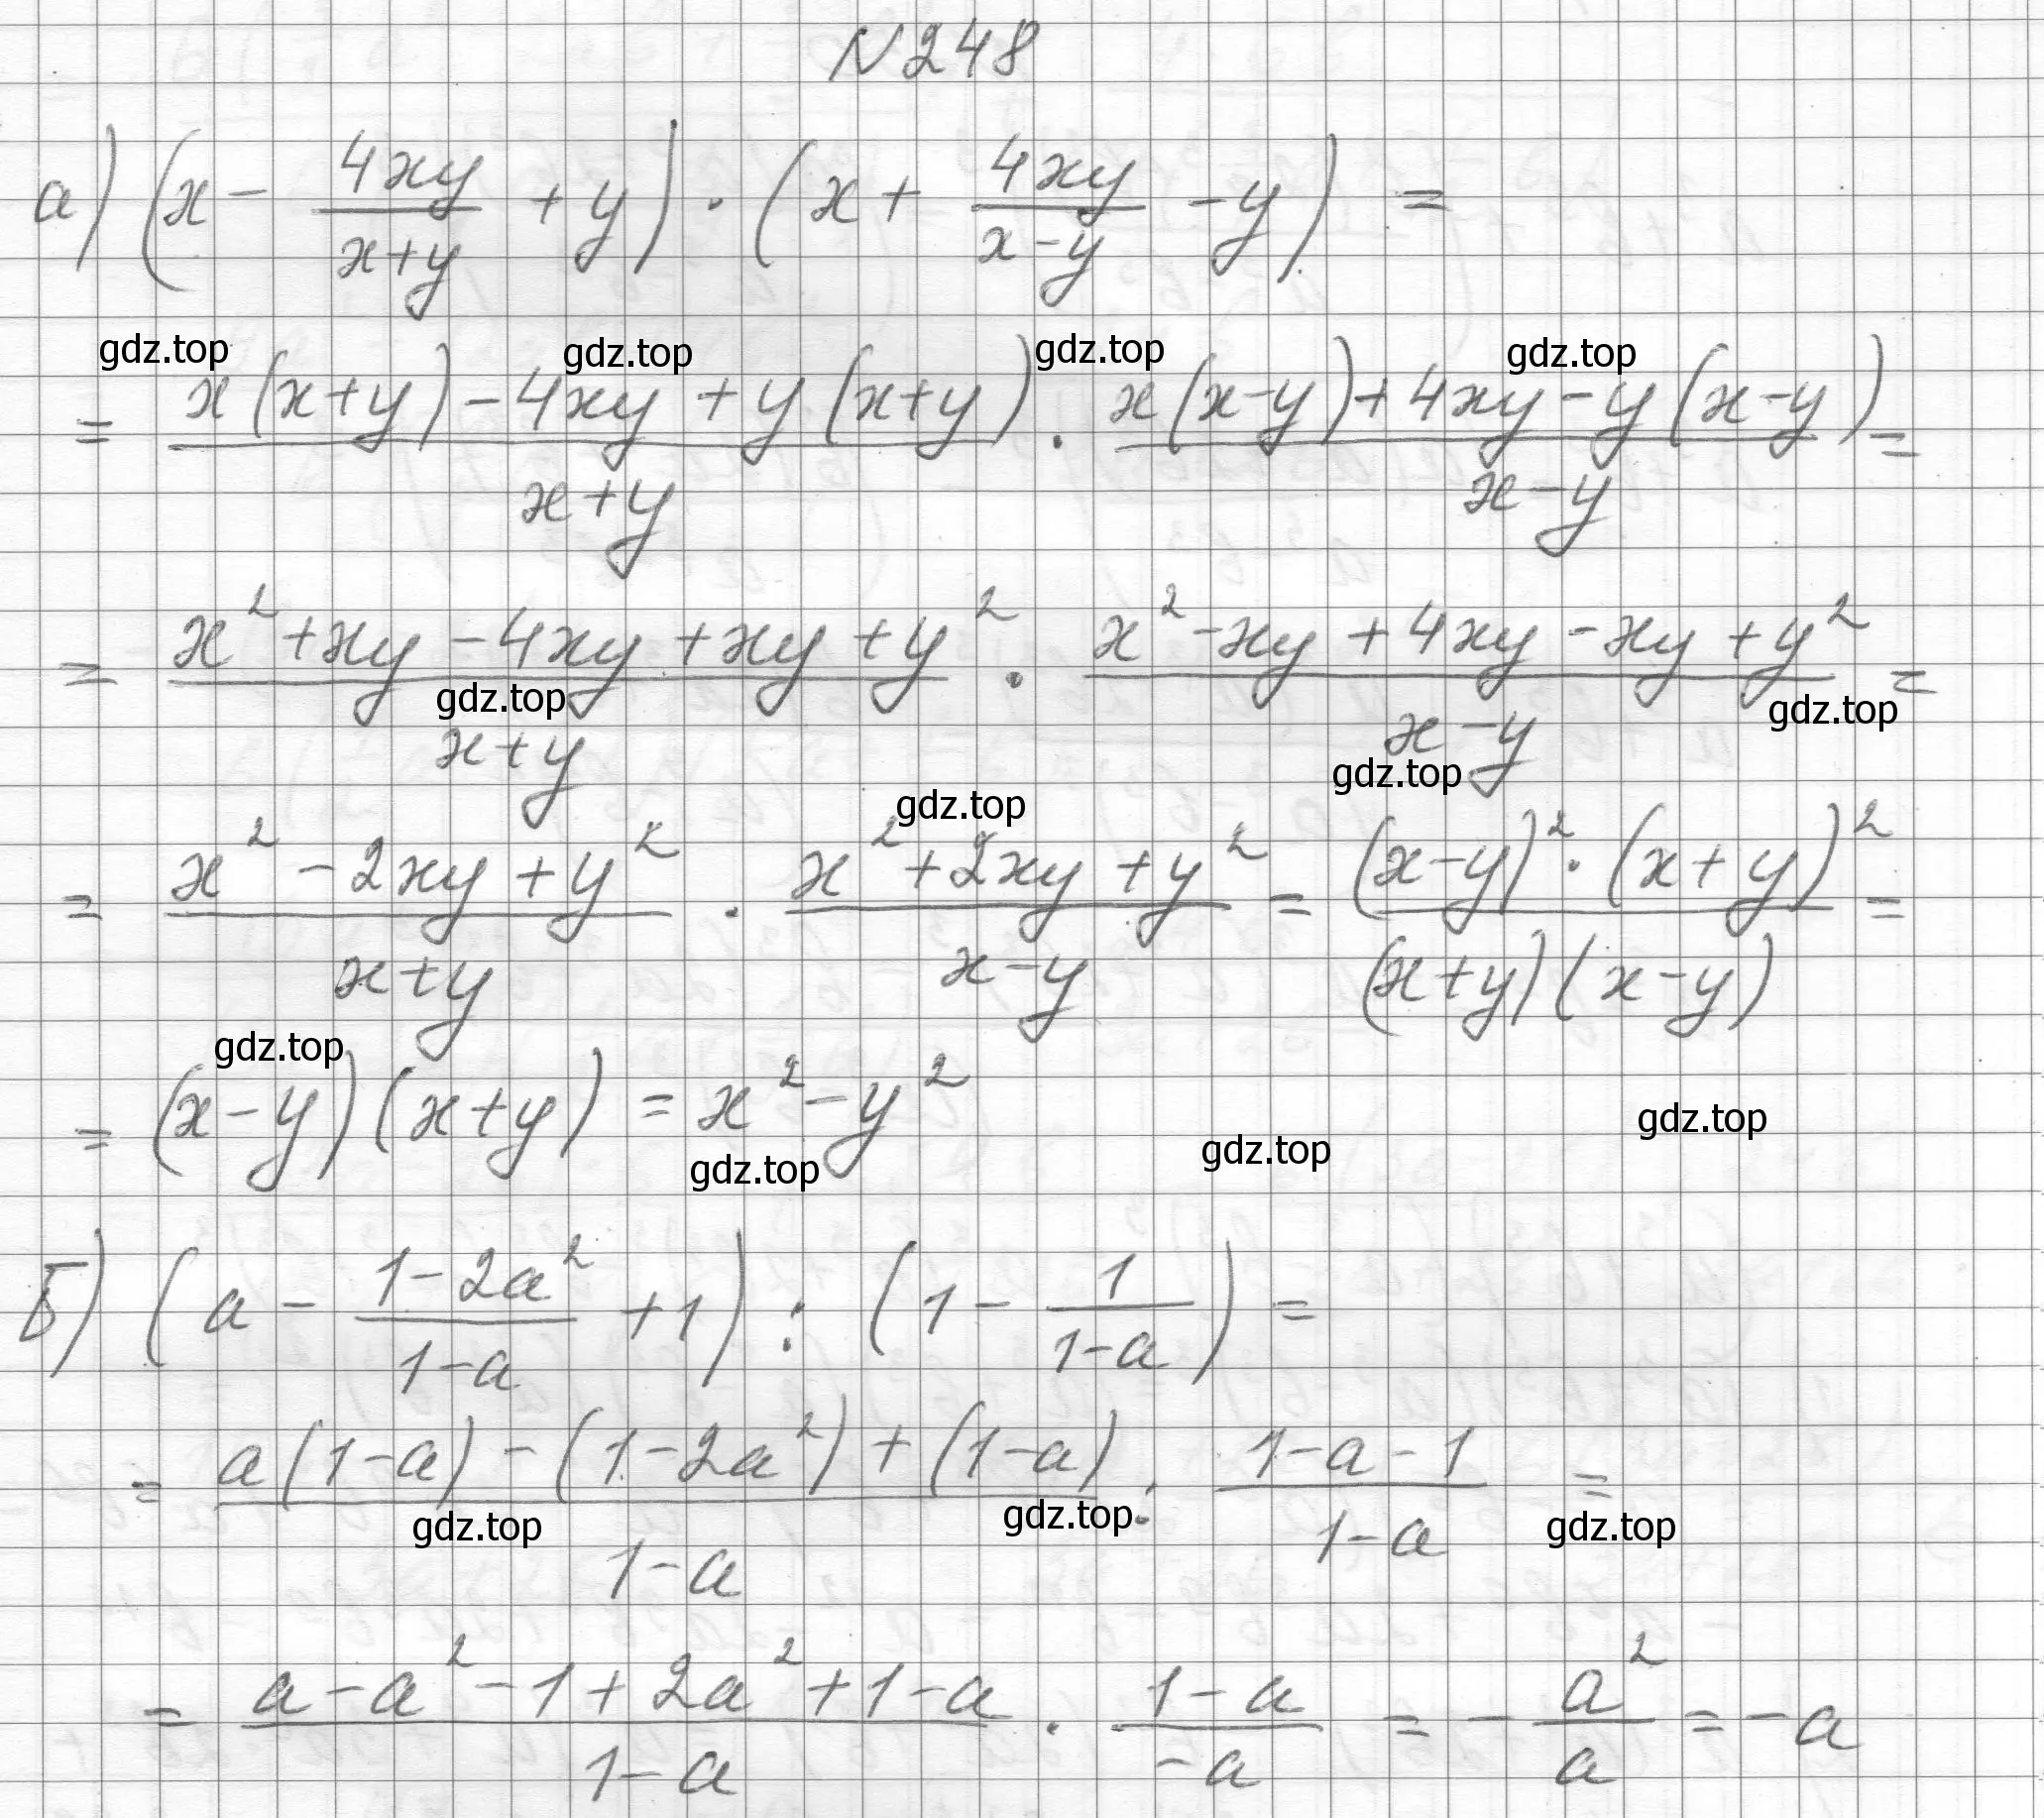 N 248
а) (x - 4xy/(x+y) + y) · (x + 4xy/(x-y) - y) =
gdz.top gdz.top gdz.top gdz.top
= (x(x+y) - 4xy + y(x+y))/(x+y) · (x(x-y) + 4xy - y(x-y))/(x-y) =
= (x² + xy - 4xy + xy + y²)/(x+y) · (x² - xy + 4xy - xy + y²)/(x-y) =
gdz.top gdz.top
gdz.top gdz.top
= (x² - 2xy + y²)/(x+y) · (x² + 2xy + y²)/(x-y) = ((x-y)² · (x+y)²)/((x+y)(x-y)) =
gdz.top
= (x-y)(x+y) = x² - y²
gdz.top gdz.top gdz.top
Б) (a - (1-2a²)/(1-a) + 1) : (1 - 1/(1-a)) =
= (a(1-a) - (1-2a²) + (1-a))/(1-a) : (1-a-1)/(1-a) =
gdz.top gdz.top gdz.top
= (a - a² - 1 + 2a² + 1 - a)/(1-a) · (1-a)/(-a) = - a²/a = -a